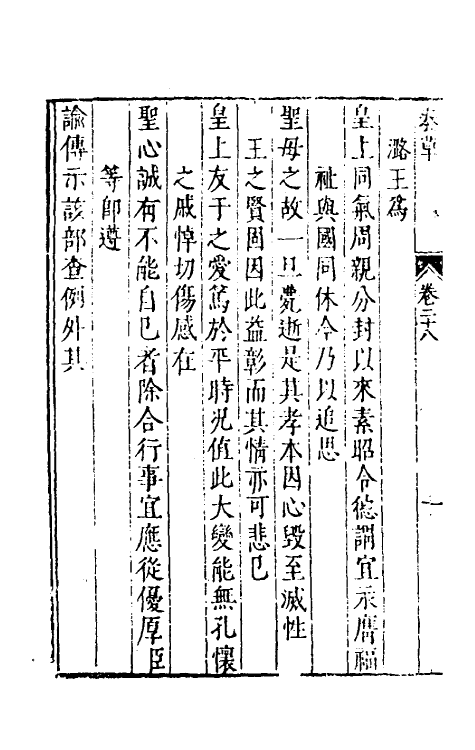 奏草
卷二十八
一
潞王爲
皇上同氣周親分封以來素昭令德謂宜永膺福
祉與國同休今乃以追思
聖母之故一旦薨逝是其孝本因心毀至滅性
王之賢固因此益彰而其情亦可悲已
皇上友于之愛篤於平時況值此大變能無孔懷
之戚悼切傷感在
聖心誠有不能自已者除合行事宜應從優厚臣
等即遵
諭傳示該部查例外其